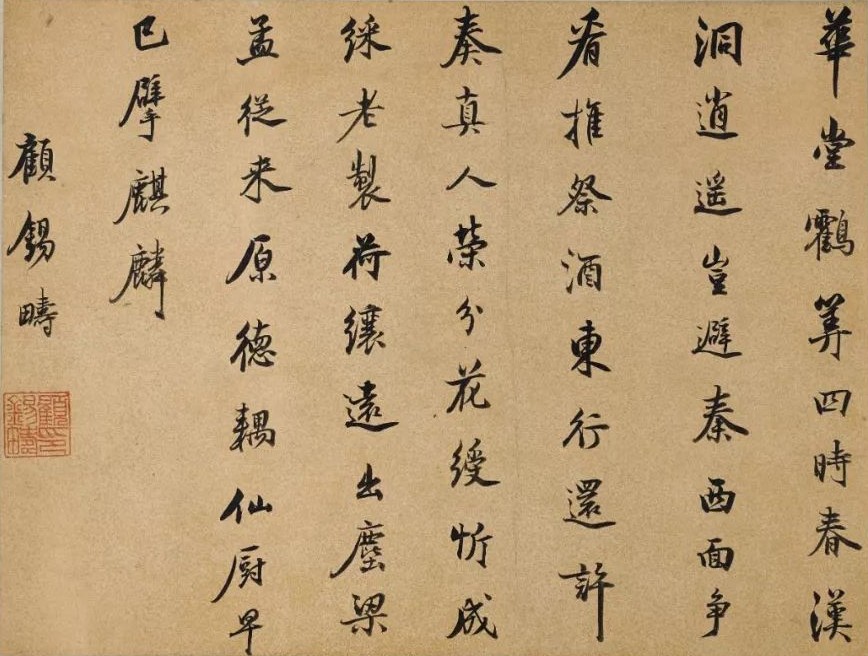 華堂鸖筭四時春漢
洞逍遥豈避秦西面争
看推祭酒東行還許
奏真人榮分花綬忻成
綵老製荷纕遠出塵梁
孟從来原德耦仙厨早
已擘麒麟
顧錫疇
顧印錫疇